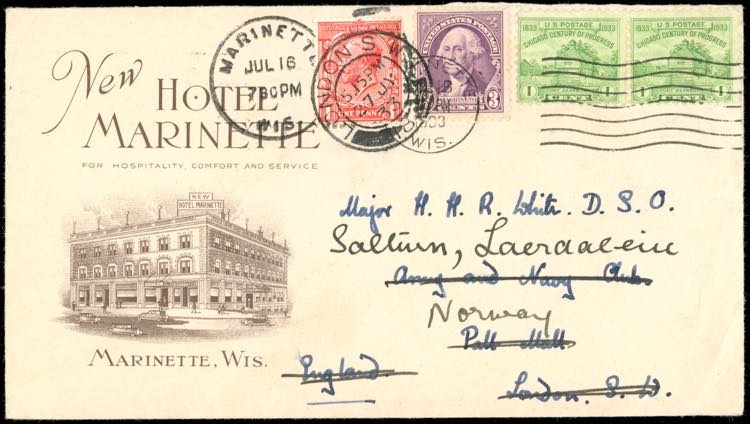 New
HOTEL
MARINETTE
FOR HOSPITALITY, COMFORT AND SERVICE
NEW
HOTEL MARINETTE
MARINETTE, WIS.
MARINETTE
JUL 16
7 30 PM
WIS.
POSTAGE
ONE PENNY
LONDON S.W.
5 15 PM
JY
33
UNITED STATES POSTAGE
WASHINGTON
3
3
1933
WIS.
U.S. POSTAGE
1833 1933
CHICAGO CENTURY OF PROGRESS
FORT DEARBORN
1 CENT 1
U.S. POSTAGE
1833 1933
CHICAGO CENTURY OF PROGRESS
1 CENT 1
Major H. H. R. White. D. S. O.
Army and Navy Club
Norway
Pall Mall
England.
London. S. W.